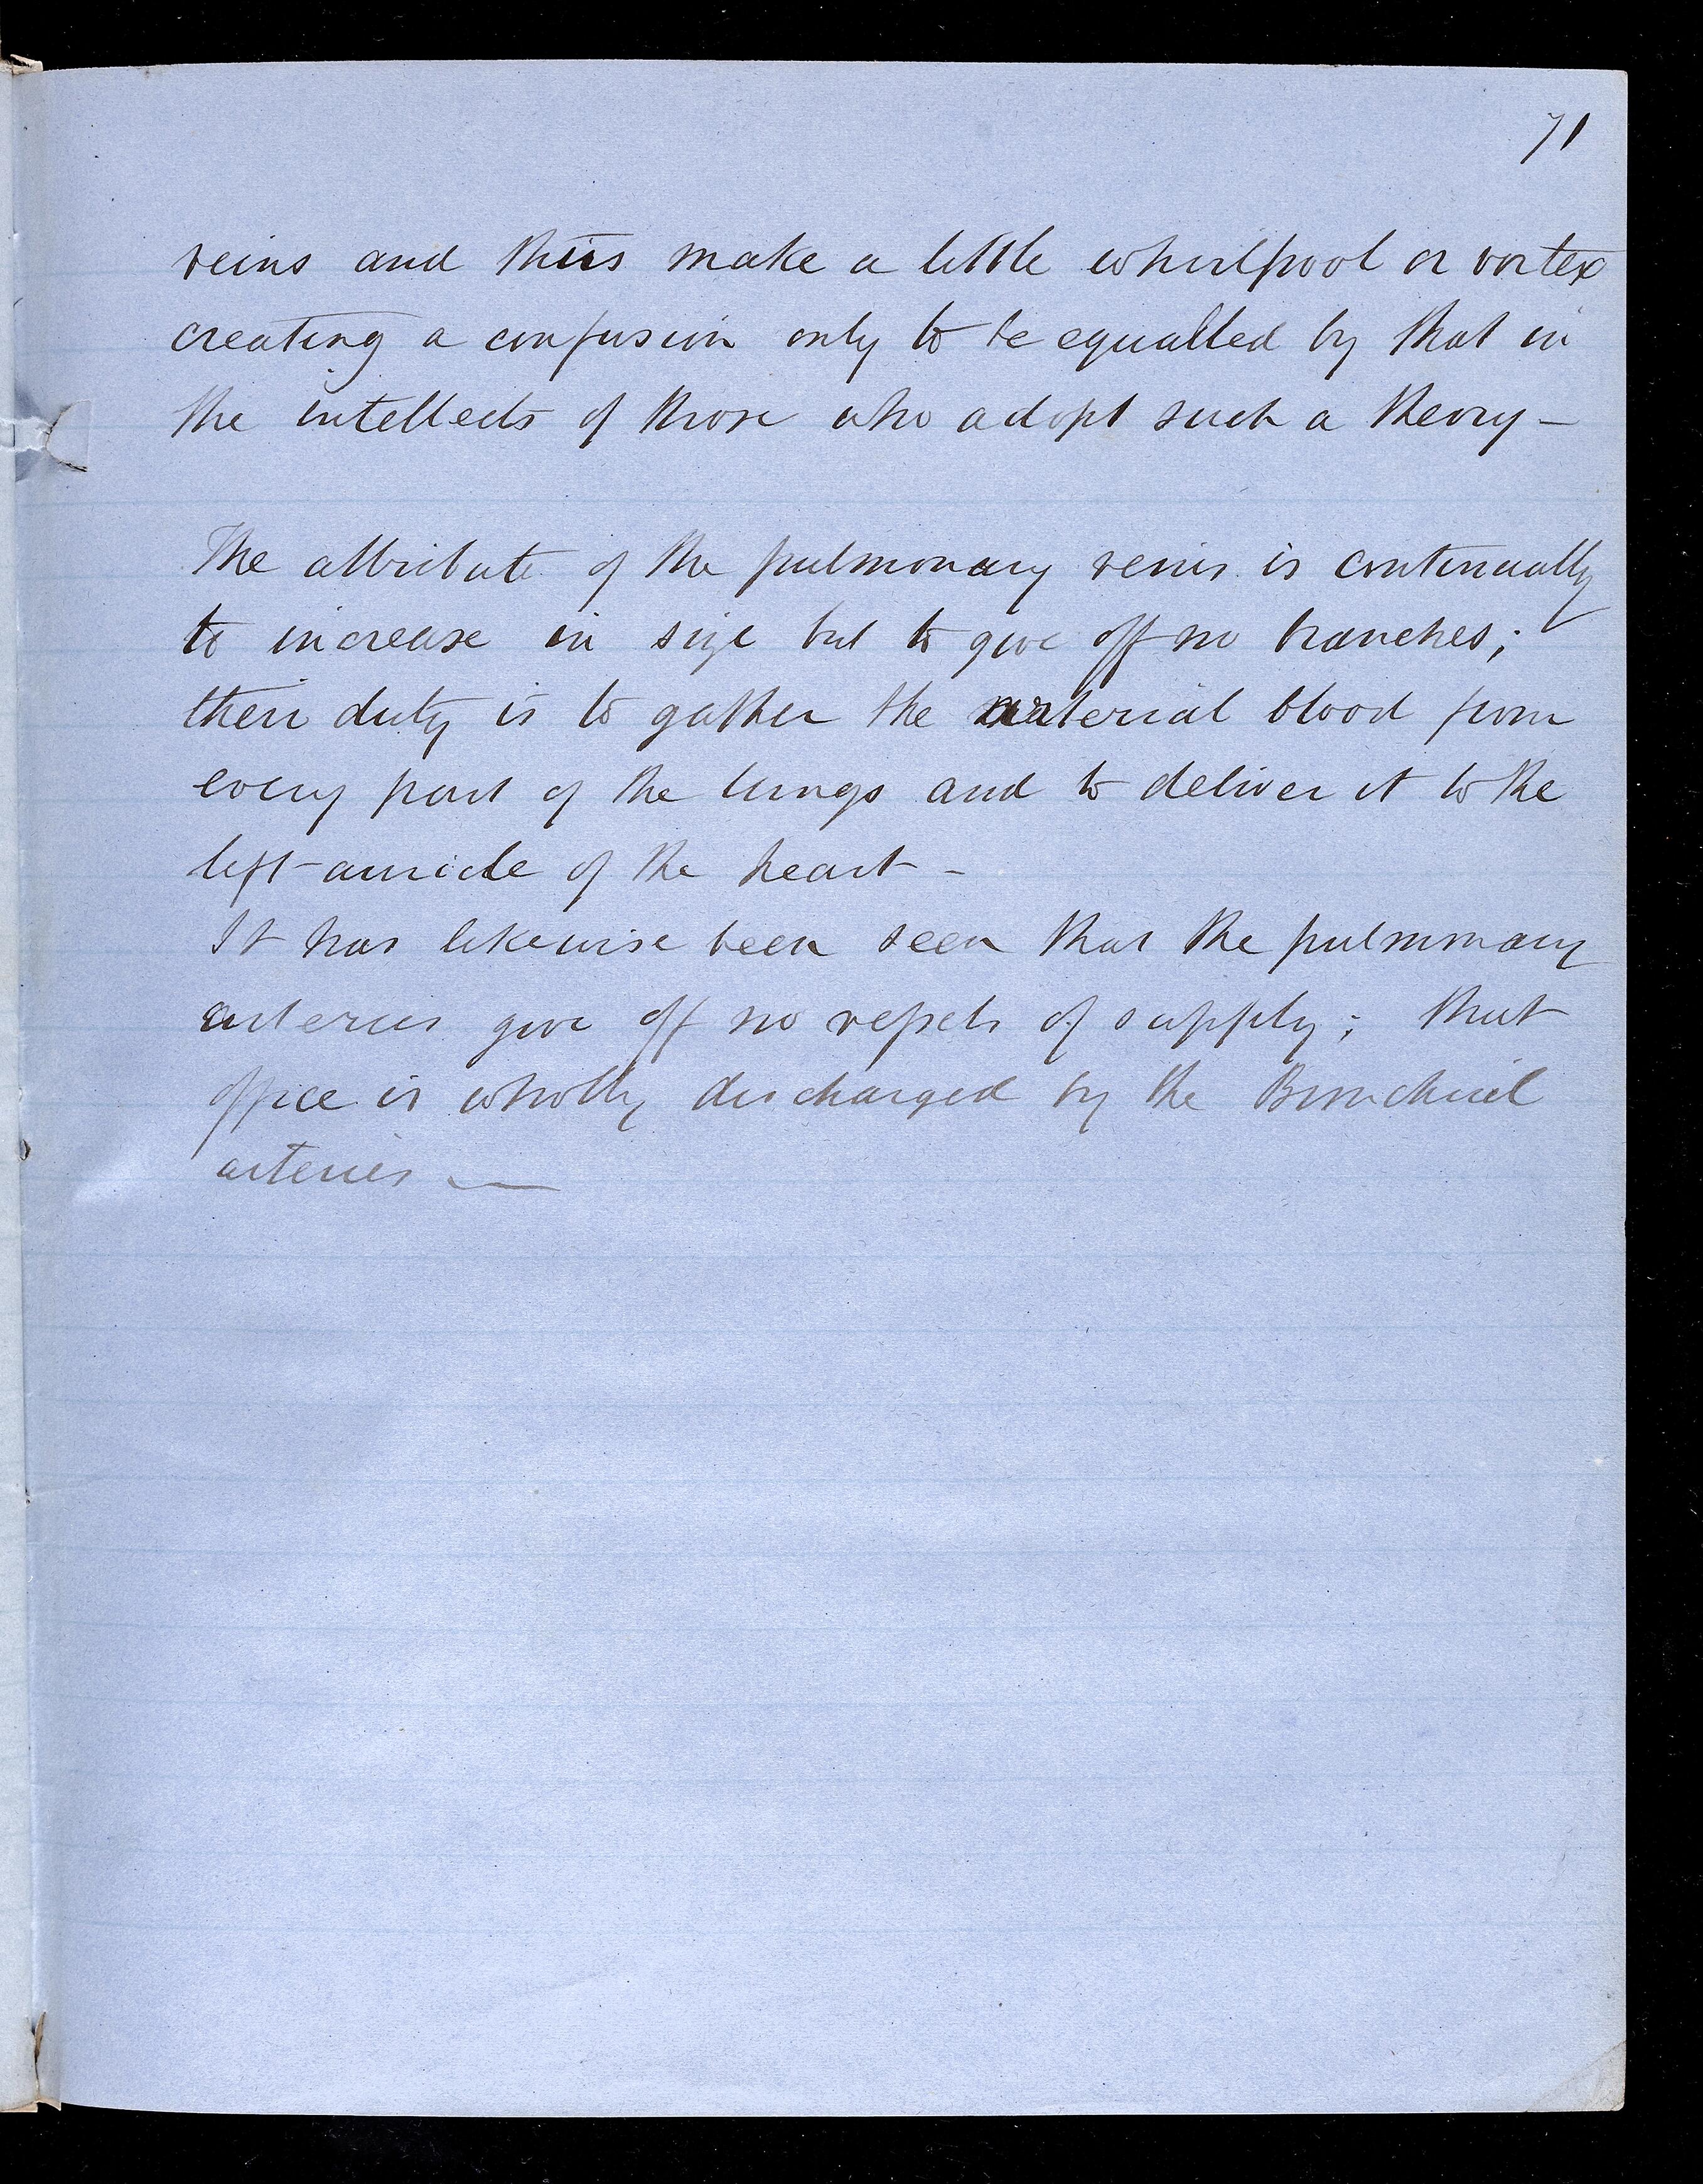 71
veins and thus make a little whirlpool or vortex
creating a confusion only to be equalled by that in
the intellects of those who adopt such a theory —
The attribute of the pulmonary veins is continually
to increase in size but to give off no branches;
their duty is to gather the arterial blood from
every part of the lungs and to deliver it to the
left auricle of the heart —
It has likewise been seen that the pulmonary
arteries give off no vessels of supply; that
office is wholly discharged by the Bronchial
arteries —